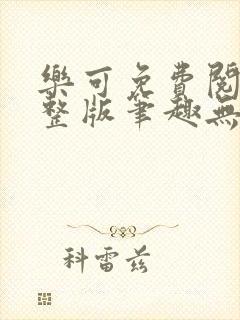 樂可免費閱
整版筆趣無
科雷兹